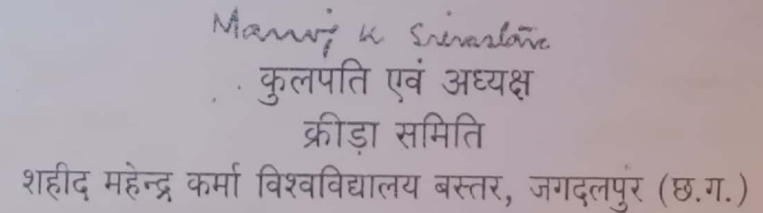 Manoj K Srivastava
कुलपति एवं अध्यक्ष
क्रीड़ा समिति
शहीद महेन्द्र कर्मा विश्वविद्यालय बस्तर, जगदलपुर (छ.ग.)